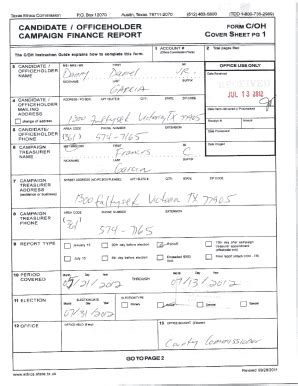 Texas Ethics Commission P.O. Box 12070 Austin, Texas 78711-2070 (512) 463-5800 (TDD 1-800-735-2989)
CANDIDATE / OFFICEHOLDER FORM C/OH
CAMPAIGN FINANCE REPORT COVER SHEET PG 1
The C/OH Instruction Guide explains how to complete this form.
1 ACCOUNT #
2 Total pages filed:
3 CANDIDATE / OFFICEHOLDER NAME
MS / MRS / MR FIRST MI
Danny
NICKNAME LAST SUFFIX
GARCIA
OFFICE USE ONLY
Date Received
JUL 13 2012
4 CANDIDATE / OFFICEHOLDER MAILING ADDRESS
change of address
ADDRESS / PO BOX; APT / SUITE #; CITY; STATE; ZIP CODE
1300 Victoria TX 77905
Date Hand-delivered or Postmarked
5 CANDIDATE / OFFICEHOLDER PHONE
AREA CODE PHONE NUMBER EXTENSION
(361) 574-7165
Receipt # Amount
Date Processed
6 CAMPAIGN TREASURER NAME
MS / MRS / MR FIRST MI
Frances C
NICKNAME LAST SUFFIX
Garcia
Date Imaged
7 CAMPAIGN TREASURER ADDRESS
(residence or business)
STREET ADDRESS (NO PO BOX PLEASE); APT / SUITE #; CITY; STATE; ZIP CODE
1300 Victoria TX 77905
8 CAMPAIGN TREASURER PHONE
AREA CODE PHONE NUMBER EXTENSION
(361) 574-7165
9 REPORT TYPE
January 15 30th day before election Runoff 15th day after campaign treasurer appointment (officeholder only)
July 15 8th day before election Exceeded $500 limit Final report
10 PERIOD COVERED
Month Day Year THROUGH Month Day Year
2012 07/13/2012
11 ELECTION
ELECTION DATE
Month Day Year
07/31/2012
ELECTION TYPE
Primary
12 OFFICE
OFFICE HELD (if any)
13 OFFICE SOUGHT (if known)
County Commissioner
GO TO PAGE 2
www.ethics.state.tx.us Revised 09/28/2011